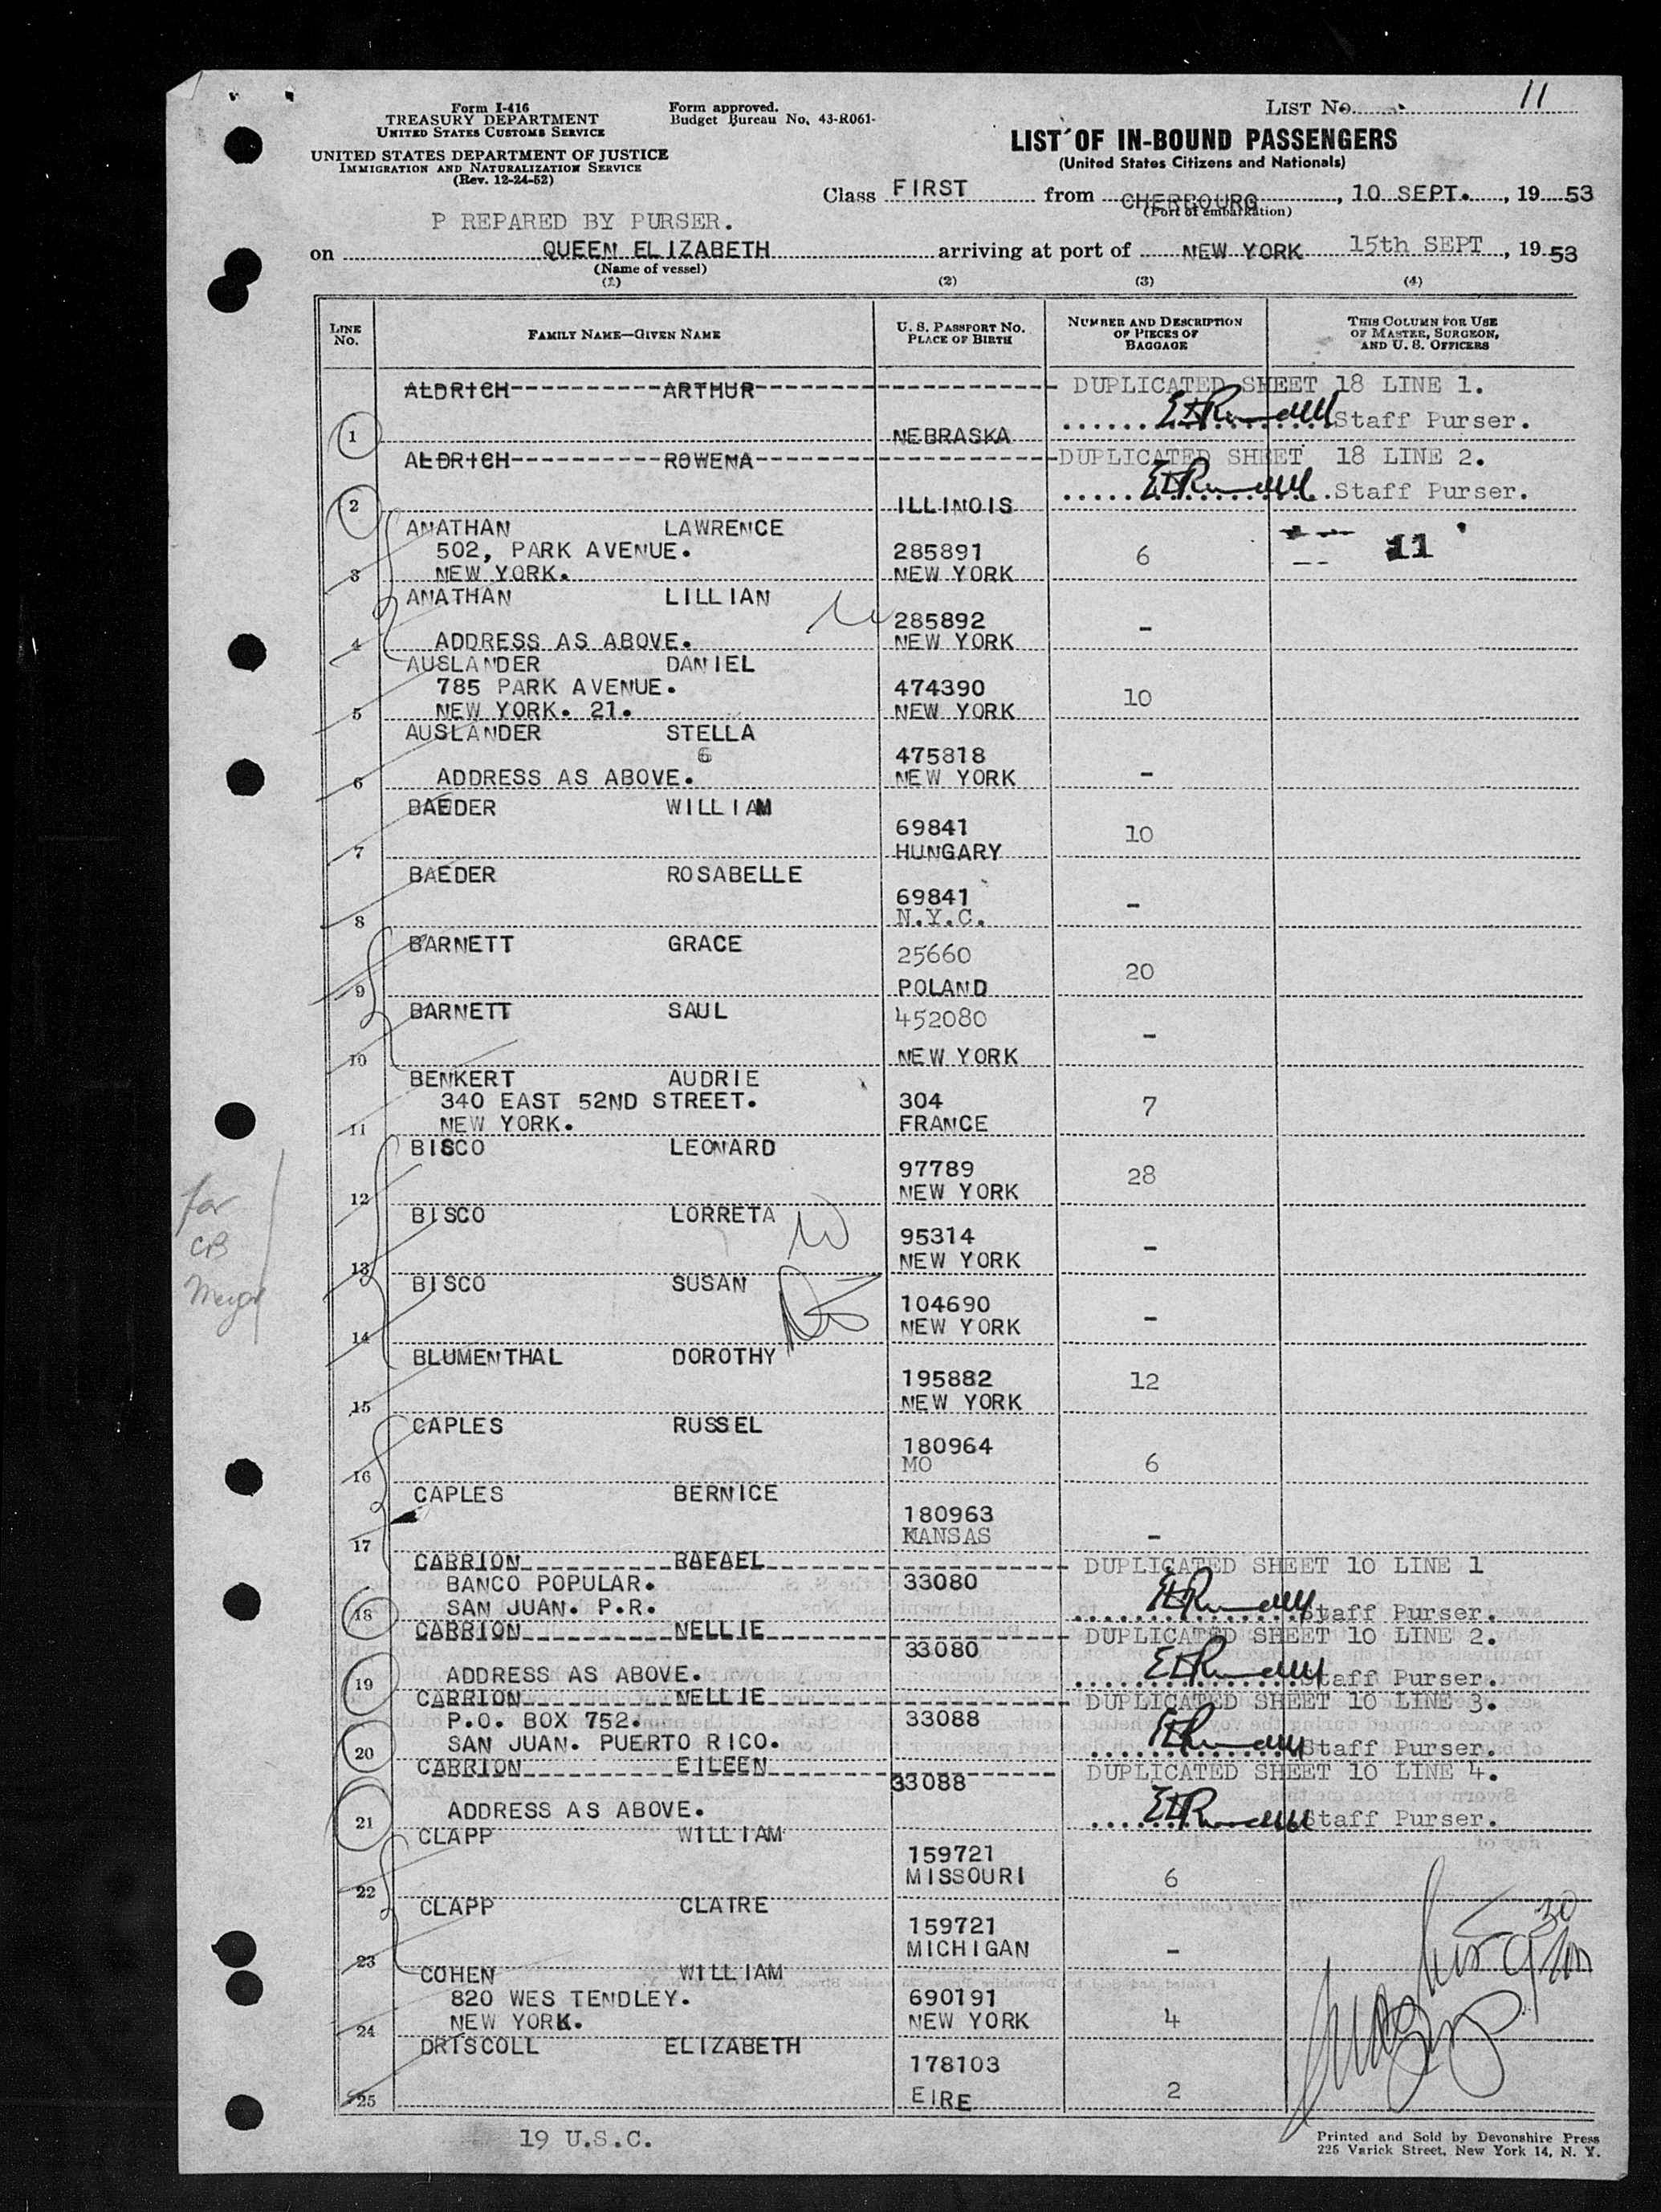 Form I-416
TREASURY DEPARTMENT
UNITED STATES CUSTOMS SERVICE
UNITED STATES DEPARTMENT OF JUSTICE
IMMIGRATION AND NATURALIZATION SERVICE
(Rev. 12-24-52)
Form approved.
Budget Bureau No. 43-R061-
LIST No. 11
LIST OF IN-BOUND PASSENGERS
(United States Citizens and Nationals)
Class FIRST from CHERBOURG, 10 SEPT., 1953
(Port of embarkation)
P REPARED BY PURSER.
on QUEEN ELIZABETH arriving at port of NEW YORK 15th SEPT, 19 53
(Name of vessel)
(1) (2) (3) (4)
LINE No. FAMILY NAME—GIVEN NAME U. S. PASSPORT No. PLACE OF BIRTH NUMBER AND DESCRIPTION OF PIECES OF BAGGAGE THIS COLUMN FOR USE OF MASTER, SURGEON, AND U. S. OFFICERS
ALDRICH ARTHUR DUPLICATED SHEET 18 LINE 1.
Staff Purser.
1 NEBRASKA
ALDRICH ROWENA DUPLICATED SHEET 18 LINE 2.
Staff Purser.
2 ILLINOIS
ANATHAN LAWRENCE
502, PARK AVENUE. 285891 6 11
3 NEW YORK. NEW YORK
ANATHAN LILLIAN
285892 -
4 ADDRESS AS ABOVE. NEW YORK
AUSLANDER DANIEL
785 PARK AVENUE. 474390 10
5 NEW YORK. 21. NEW YORK
AUSLANDER STELLA
6 475818
6 ADDRESS AS ABOVE. NEW YORK -
BAEDER WILLIAM
69841 10
7 HUNGARY
BAEDER ROSABELLE
69841 -
8 N.Y.C.
BARNETT GRACE 25660
20
9 POLAND
BARNETT SAUL 452080
-
10 NEW YORK
BENKERT AUDRIE
340 EAST 52ND STREET. 304 7
11 NEW YORK. FRANCE
BISCO LEONARD
97789 28
12 NEW YORK
BISCO LORRETA
95314 -
13 NEW YORK
BISCO SUSAN
104690 -
14 NEW YORK
for
CB
BLUMENTHAL DOROTHY
195882 12
15 NEW YORK
CAPLES RUSSEL
180964
16 MO 6
CAPLES BERNICE
180963
17 KANSAS -
CARRION RAFAEL DUPLICATED SHEET 10 LINE 1
BANCO POPULAR. 33080
18 SAN JUAN. P.R. Staff Purser.
CARRION NELLIE DUPLICATED SHEET 10 LINE 2.
33080
19 ADDRESS AS ABOVE. Staff Purser.
CARRION NELLIE DUPLICATED SHEET 10 LINE 3.
P.O. BOX 752. 33088
20 SAN JUAN. PUERTO RICO. Staff Purser.
CARRION EILEEN DUPLICATED SHEET 10 LINE 4.
33088
21 ADDRESS AS ABOVE. Staff Purser.
CLAPP WILLIAM
159721
22 MISSOURI 6
CLAPP CLAIRE
159721
23 MICHIGAN -
COHEN WILLIAM
820 WES TENDLEY. 690191
24 NEW YORK. NEW YORK 4
DRISCOLL ELIZABETH
178103
25 EIRE 2
19 U.S.C.
Printed and Sold by Devonshire Press
225 Varick Street, New York 14, N. Y.